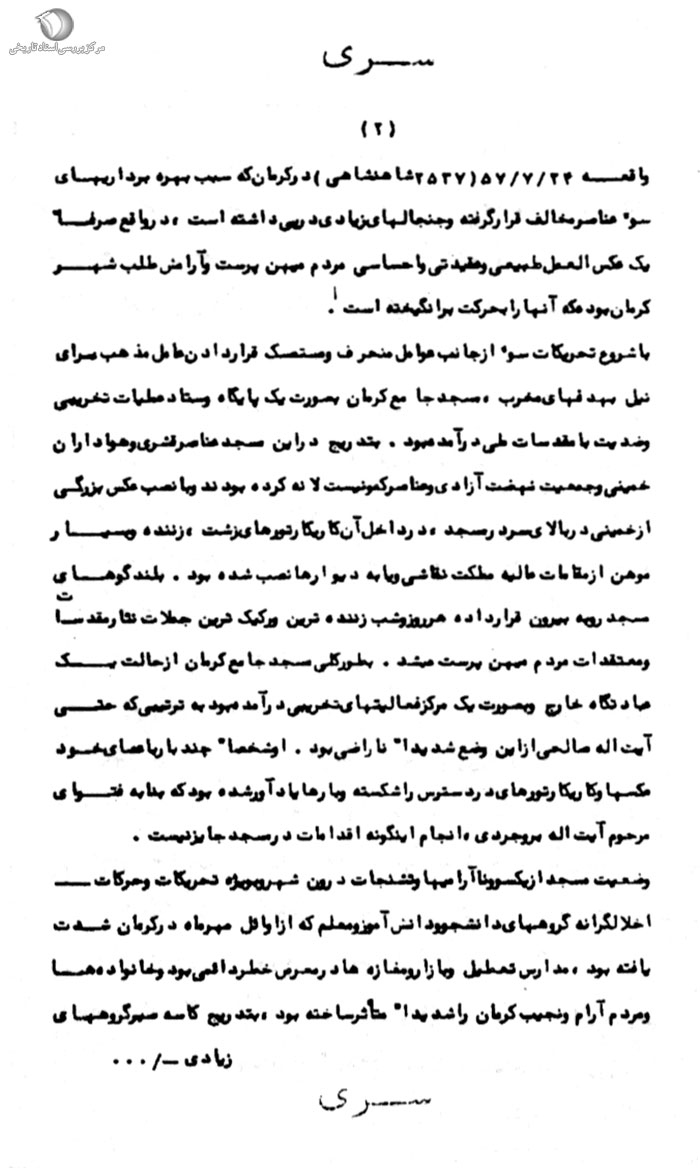 مرکز بررسی اسناد تاریخی
ســـری
(۲)
واقعـــه ۵۷/۷/۲۴ (۲۵۳۷ شاهنشاهی) در کرمان که سبب بهره برداریهای
سوء عناصر مخالف قرار گرفته وجنجالهای زیادی درپی داشته است ، در واقع صرفا"
یک عکس العمل طبیعی وعقیدتی واحساسی مردم میهن پرست وآرامش طلب شهـر
کرمان بوده که آنها را بحرکت برانگیخته است .
با شروع تحریکات سوء از جانب عوامل منحرف ومتمسک قرار دادن عامل مذهب برای
نیل بهدفهای مخرب ، مسجد جامع کرمان بصورت یک پایگاه وستاد عملیات تخریبی
وضدیت با مقدسات ملی درآمده بود . بتدریج در این مسجد عناصر قشری وهواداران
خمینی وجمعیت نهضت آزادی وعناصر کمونیست لانه کرده بودند وبا نصب عکس بزرگی
از خمینی در بالای سردر مسجد ، در داخل آن کاریکارتورهای زشت ، زننده وبسیـار
موهن از مقامات عالیه مملکت نقاشی ویا به دیوارها نصب شده بود . بلندگوهـای
مسجد روبه بیرون قرار داده هر روز وشب زننده ترین ورکیک ترین جملات نثار مقدسات
ومعتقدات مردم میهن پرست میشد . بطورکلی مسجد جامع کرمان از حالت یـک
عبادتگاه خارج وبصورت یک مرکز فعالیتهای تخریبی درآمده بود به ترتیبی که حتـی
آیت اله صالحی از این وضع شدیدا" ناراضی بود . او شخصا" چند بار با عصای خـود
عکسها وکاریکارتورهای در دسترس را شکسته وبارها یادآور شده بود که بنابه فتـوای
مرحوم آیت اله بروجردی ، انجام اینگونه اقدامات در مسجد جایز نیست .
وضعیت مسجد از یکسو وناآرامیها وتشنجات درون شهر وبویژه تحریکات وحرکات ـــ
اخلالگرانه گروههای دانشجو ودانش آموز ومعلم که از اوائل مهرماه در کرمان شـدت
یافته بود ، مدارس تعطیل وبازار ومغازه ها در معرض خطر دائمی بود وخانواده هـا
ومردم آرام ونجیب کرمان را شدیدا" متأثر ساخته بود ، بتدریج کاسه صبر گروههـای
زیادی ــ/۰۰۰
ســـری